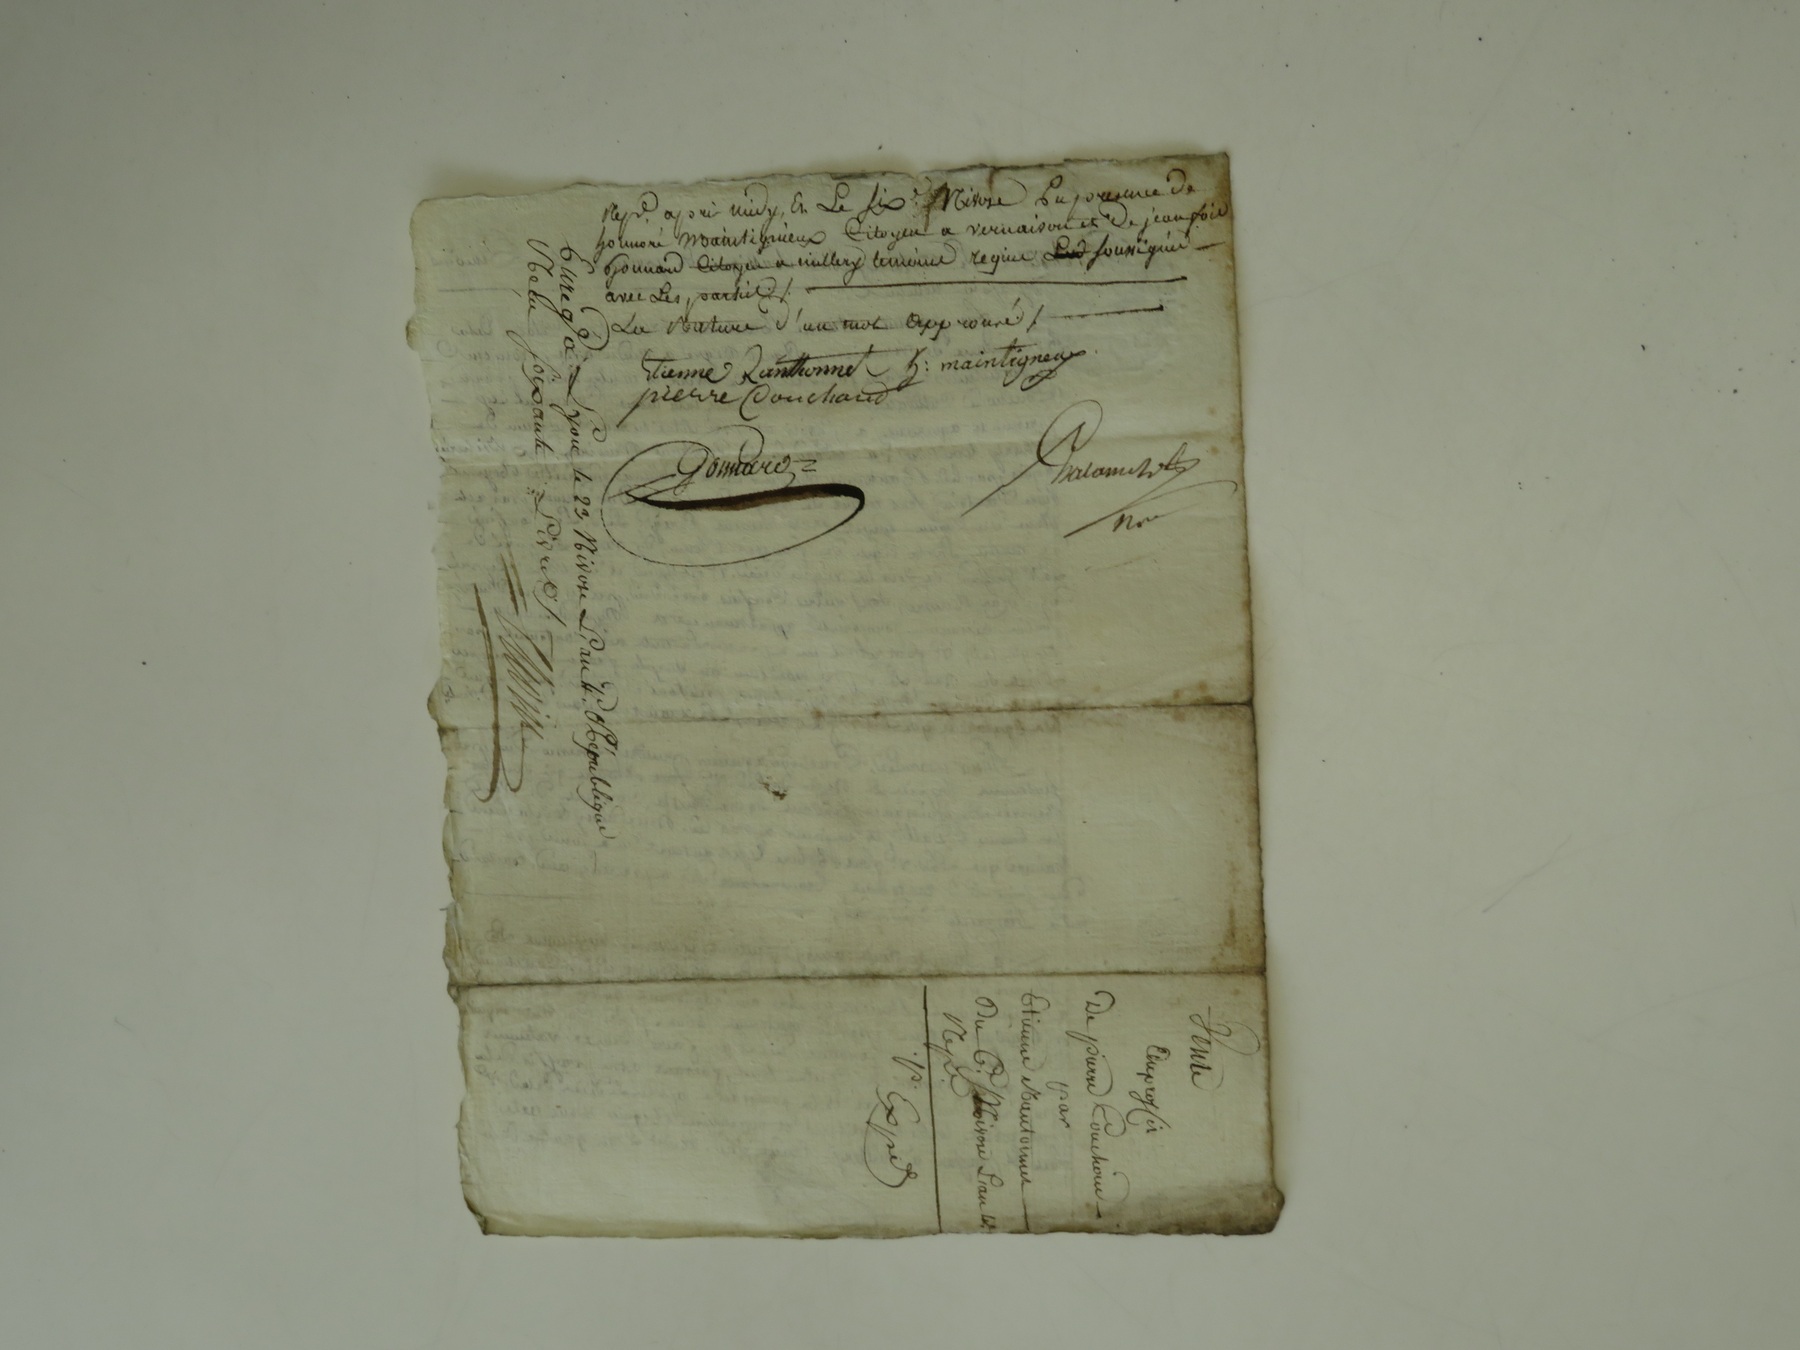 Rep.e après midy, En Le six.e Nivose En presence de
honnoré Maintigneux Citoyen a vernaison et De jean fois
Gonnard Citoyen a millery temoins requis Les soussignés
avec Les parties /.
La Rature d'un mot approuvé /.
Etienne Ranthonnet h: maintigneux
pierre Couchoud
Gonnard
Nore
Enreg.é a Lyon le 23, Nivose L'an 4.e Republique
Reçu soixante Livres /.
Vente
De pierre Couchou
par
Etienne Rantonnet
Du 6.e Nivose L'an 4.e
Rep.e
p. Exped